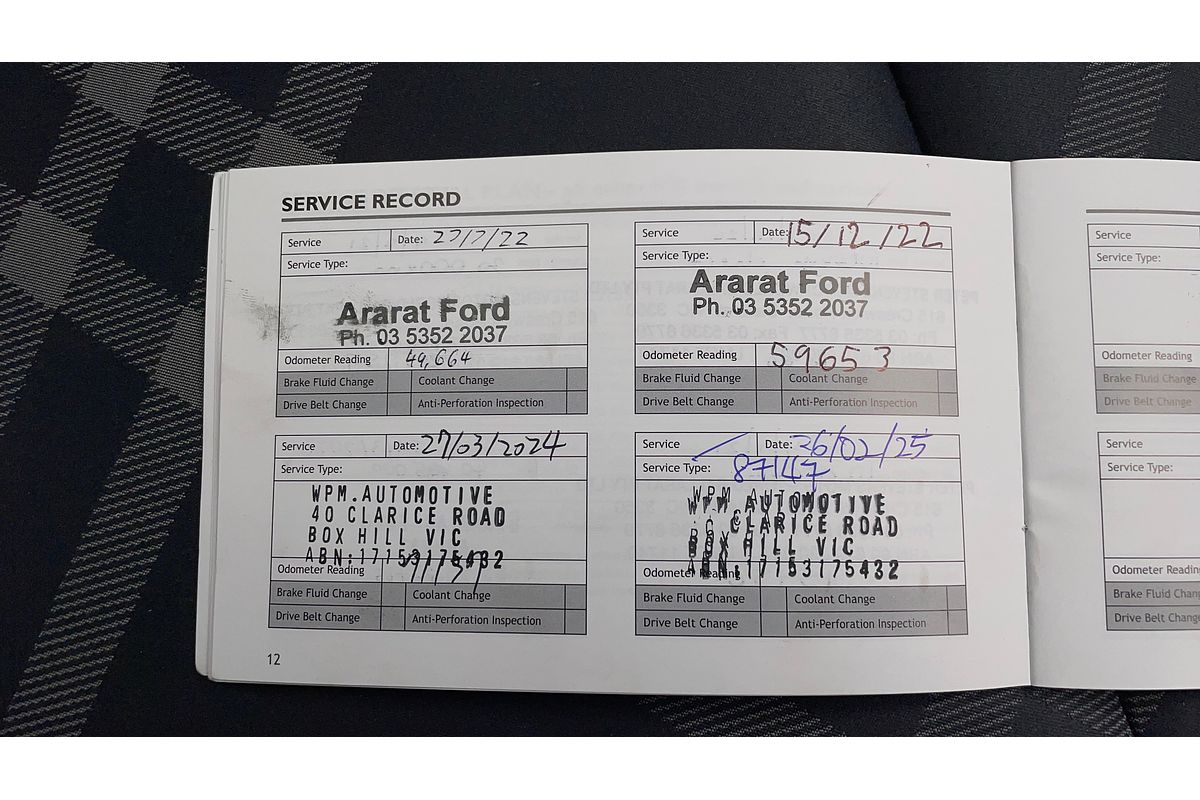 SERVICE RECORD
Service Date:
Service Type:
Ararat Ford
Ph. 03 5352 2037
Odometer Reading 49,664
Brake Fluid Change Coolant Change
Drive Belt Change Anti-Perforation Inspection
Service Date: 15/12/22
Service Type:
Ararat Ford
Ph. 03 5352 2037
Odometer Reading 59653
Brake Fluid Change Coolant Change
Drive Belt Change Anti-Perforation Inspection
Service Date: 27/03/2024
Service Type:
WPM.AUTOMOTIVE
40 CLARICE ROAD
BOX HILL VIC
ABN:17153175432
Odometer Reading
Brake Fluid Change Coolant Change
Drive Belt Change Anti-Perforation Inspection
Service Date: 26/02/25
Service Type: 87147
WPM AUTOMOTIVE
CLARICE ROAD
BOX HILL VIC
ABN:17153175432
Odometer Reading
Brake Fluid Change Coolant Change
Drive Belt Change Anti-Perforation Inspection
12
Service
Service Type:
Odometer Reading
Brake Fluid
Drive Belt
Service
Service Type:
Odometer
Brake Fluid
Drive Belt